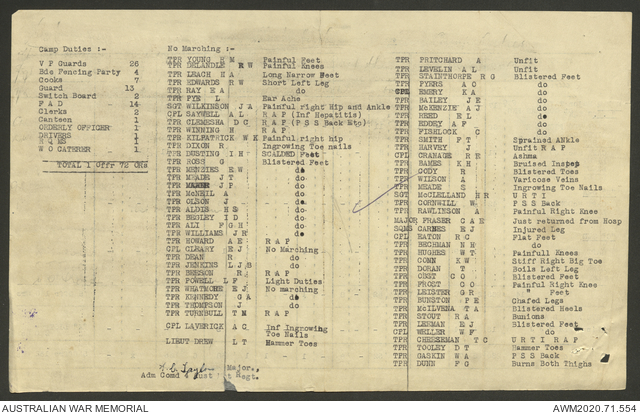 Camp Duties :-
V P Guards 26
Bde Fencing Party 4
Cooks 7
Guard 13
Switch Board 2
F A D 14
Clerks 2
Canteen 1
ORDERLY OFFICER 1
DRIVERS 1
R Q MS 1
W O CATERER 1
TOTAL 1 Offr 72 ORs
No Marching :-
TPR YOUNG H M Painful Feet
TPR DELANDLE R W Painful Knees
TPR LEACH H A Long Narrow Feet
TPR EDWARDS R W Short Left Leg
TPR RAY E A do
TPR PYN L Ear Ache
SGT WILKINSON J A Painful right Hip and Ankle
CPL SAYWELL A L R A P (Inf Hepatitis)
TPR CLEMESHA D C R A P (P S S Back Etc)
TPR WINNING H R A P
TPR KILPATRICK W K Painful right hip
TPR DIXON R Ingrowing Toe nails
TPR BUSTING I H SCALDED Feet
TPR ROSS G Blistered Feet
TPR MENZIES E W do
TPR MEADE J T do
TPR J P do
TPR McNEIL A do
TPR OLSON J do
TPR ALDIS H S do
TPR BESLEY I D do
TPR ALI F G H do
TPR WILLIAMS J R do
TPR HOWARD A E R A P
CPL CLEARY E J No Marching
TPR DEAN R do
TPR JENKINS L J B do
TPR BEESON R R A P
TPR POWELL L F Light Duties
TPR WHATMORE E J No marching
TPR KENNEDY G A do
TPR THOMPSON J do
TPR TURNBULL T M R A P
CPL LAVERICK A C Inf Ingrowing
Toe Nails
LIEUT DREW L T Hammer Toes
Taylor Major,
Adm Comd Regt.
TPR PRITCHARD A Unfit
TPR LEVELIN A L Unfit
TPR STAINTHORPE R G Blistered Feet
TPR PYERS A C do
CPL EMERY K A do
TPR BAILEY J E do
TPR McKENZIE A J do
TPR REED R L do
TPR EDDEY A P do
TPR FISHLOCK C do
TPR SMITH F T Sprained ANkle
TPR HARVEY J Unfit R A P
CPL CRANAGE R E Ashma
TPR BAMES K H Bruised Instep
TPR CODY R Blistered Toes
TPR WILSON A Varicose Veins
TPR MEADE S Ingrowing Toe Nails
SGT McCLELLAND H R U R T I
TPR CORNWILL W P S S Back
TPR RAWLINSON A Painful Right Knee
MAJOR FRASER C A E Just returned from Hosp
SQMS CARNES E J Injured Leg
CPL EATON R C Flat Feet
TPR BECHMAN N H do
TPR HUGHES W T Painfull Knees
TPR CONN K W Stiff Right Big Toe
TPR DORAN T Boils Left Leg
TPR CUST C O Blistered Feet
TPR FROST C O Painful Right Knee
TPR LEISTER G R " Feet
TPR BUNSTON P E Chafed Legs
TPR McILVENA T A Blistered Heels
TPR STOUT R A Bunions
TPR LEEMAN E J Blistered Feet
CPL WELLER W F do
TPR CHEESMAN T C U R T I R A P
TPR TOOLEY D T Hammer Toes
TPR GASKIN W A P S S Back
TPR DUNN F G Burns Both Thighs
AUSTRALIAN WAR MEMORIAL
AWM2020.71.554